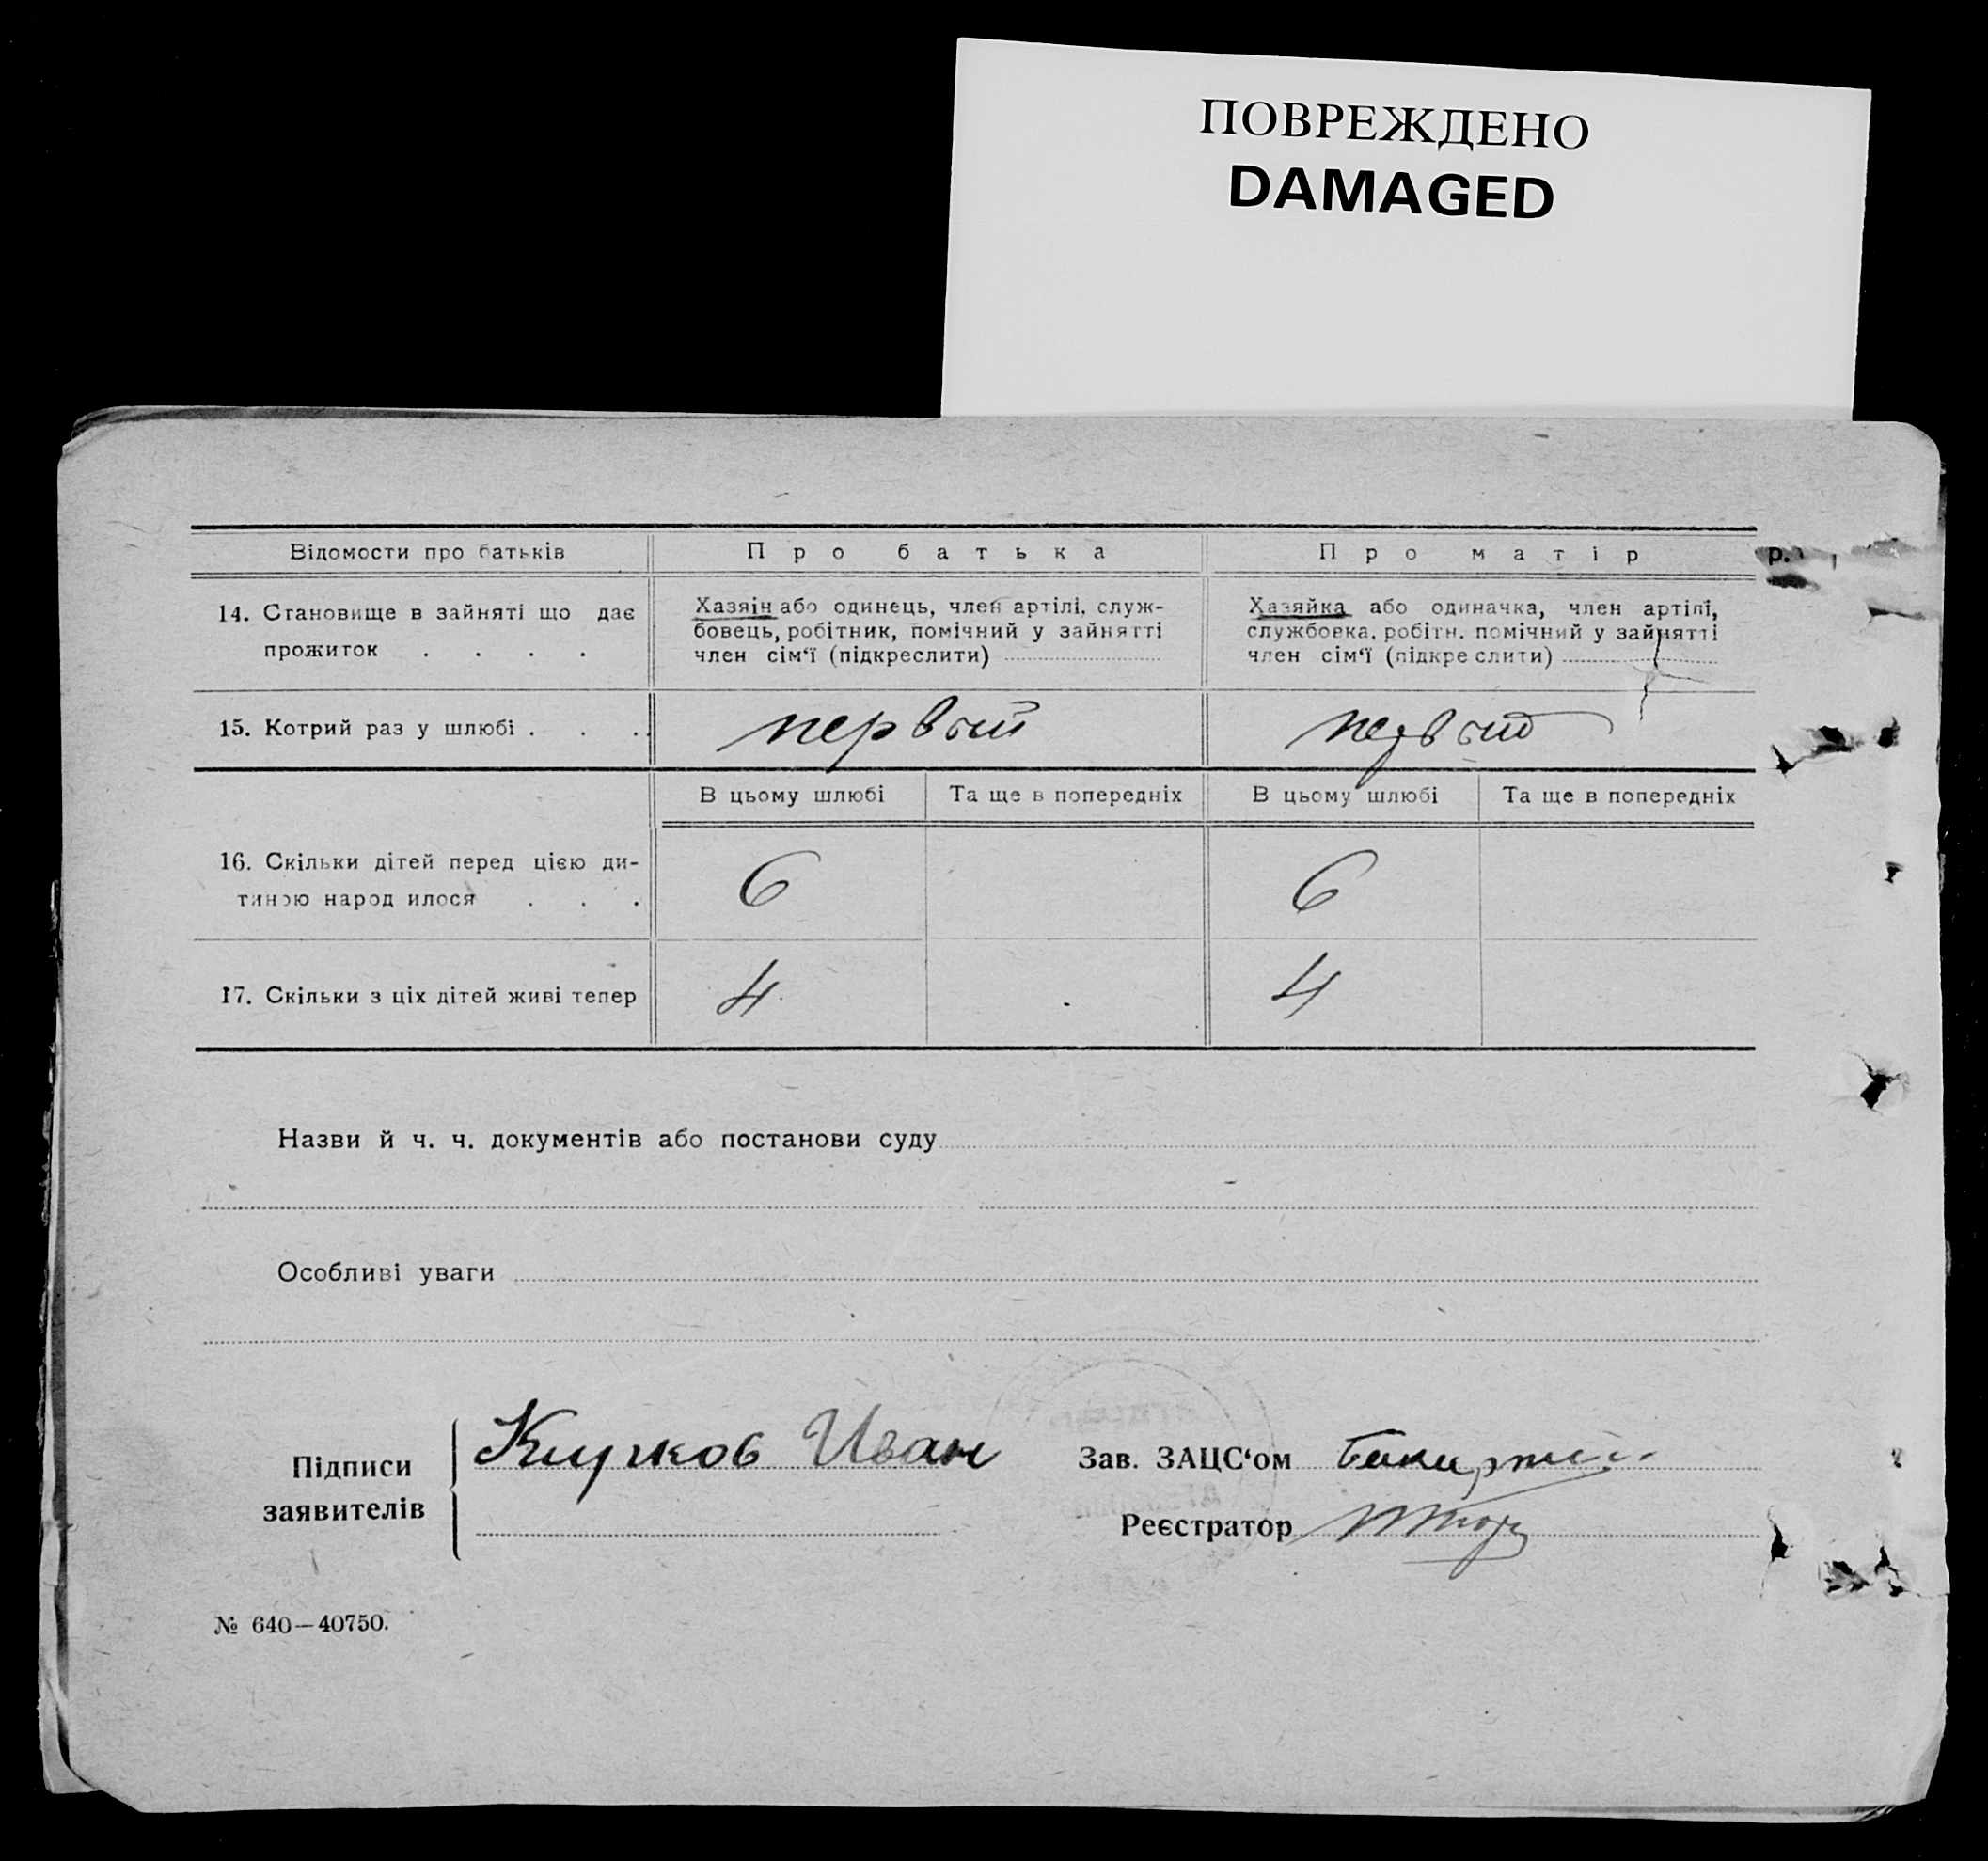 ПОВРЕЖДЕНО
DAMAGED
Відомости про батьків
Про батька
Про матір
р.
14. Становище в зайняті що дає
прожиток . . . .
Хазяін або одинець, член артілі, служ-
бовець, робітник, помічний у зайнятті
член сім‘ї (підкреслити)
Хазяйка або одиначка, член артілі,
службовка, робітн. помічний у зайнятті
член сім‘ї (підкре слити)
15. Котрий раз у шлюбі . . .
первый
первый
В цьому шлюбі
Та ще в попередніх
В цьому шлюбі
Та ще в попередніх
16. Скільки дітей перед цією ди-
тиною народ илося . . .
6
6
17. Скільки з ціх дітей живі тепер
4
4
Назви й ч. ч. документів або постанови суду
Особливі уваги
Підписи
заявителів
Иван
Зав. ЗАЦС‘ом
Реєстратор
№ 640—40750.